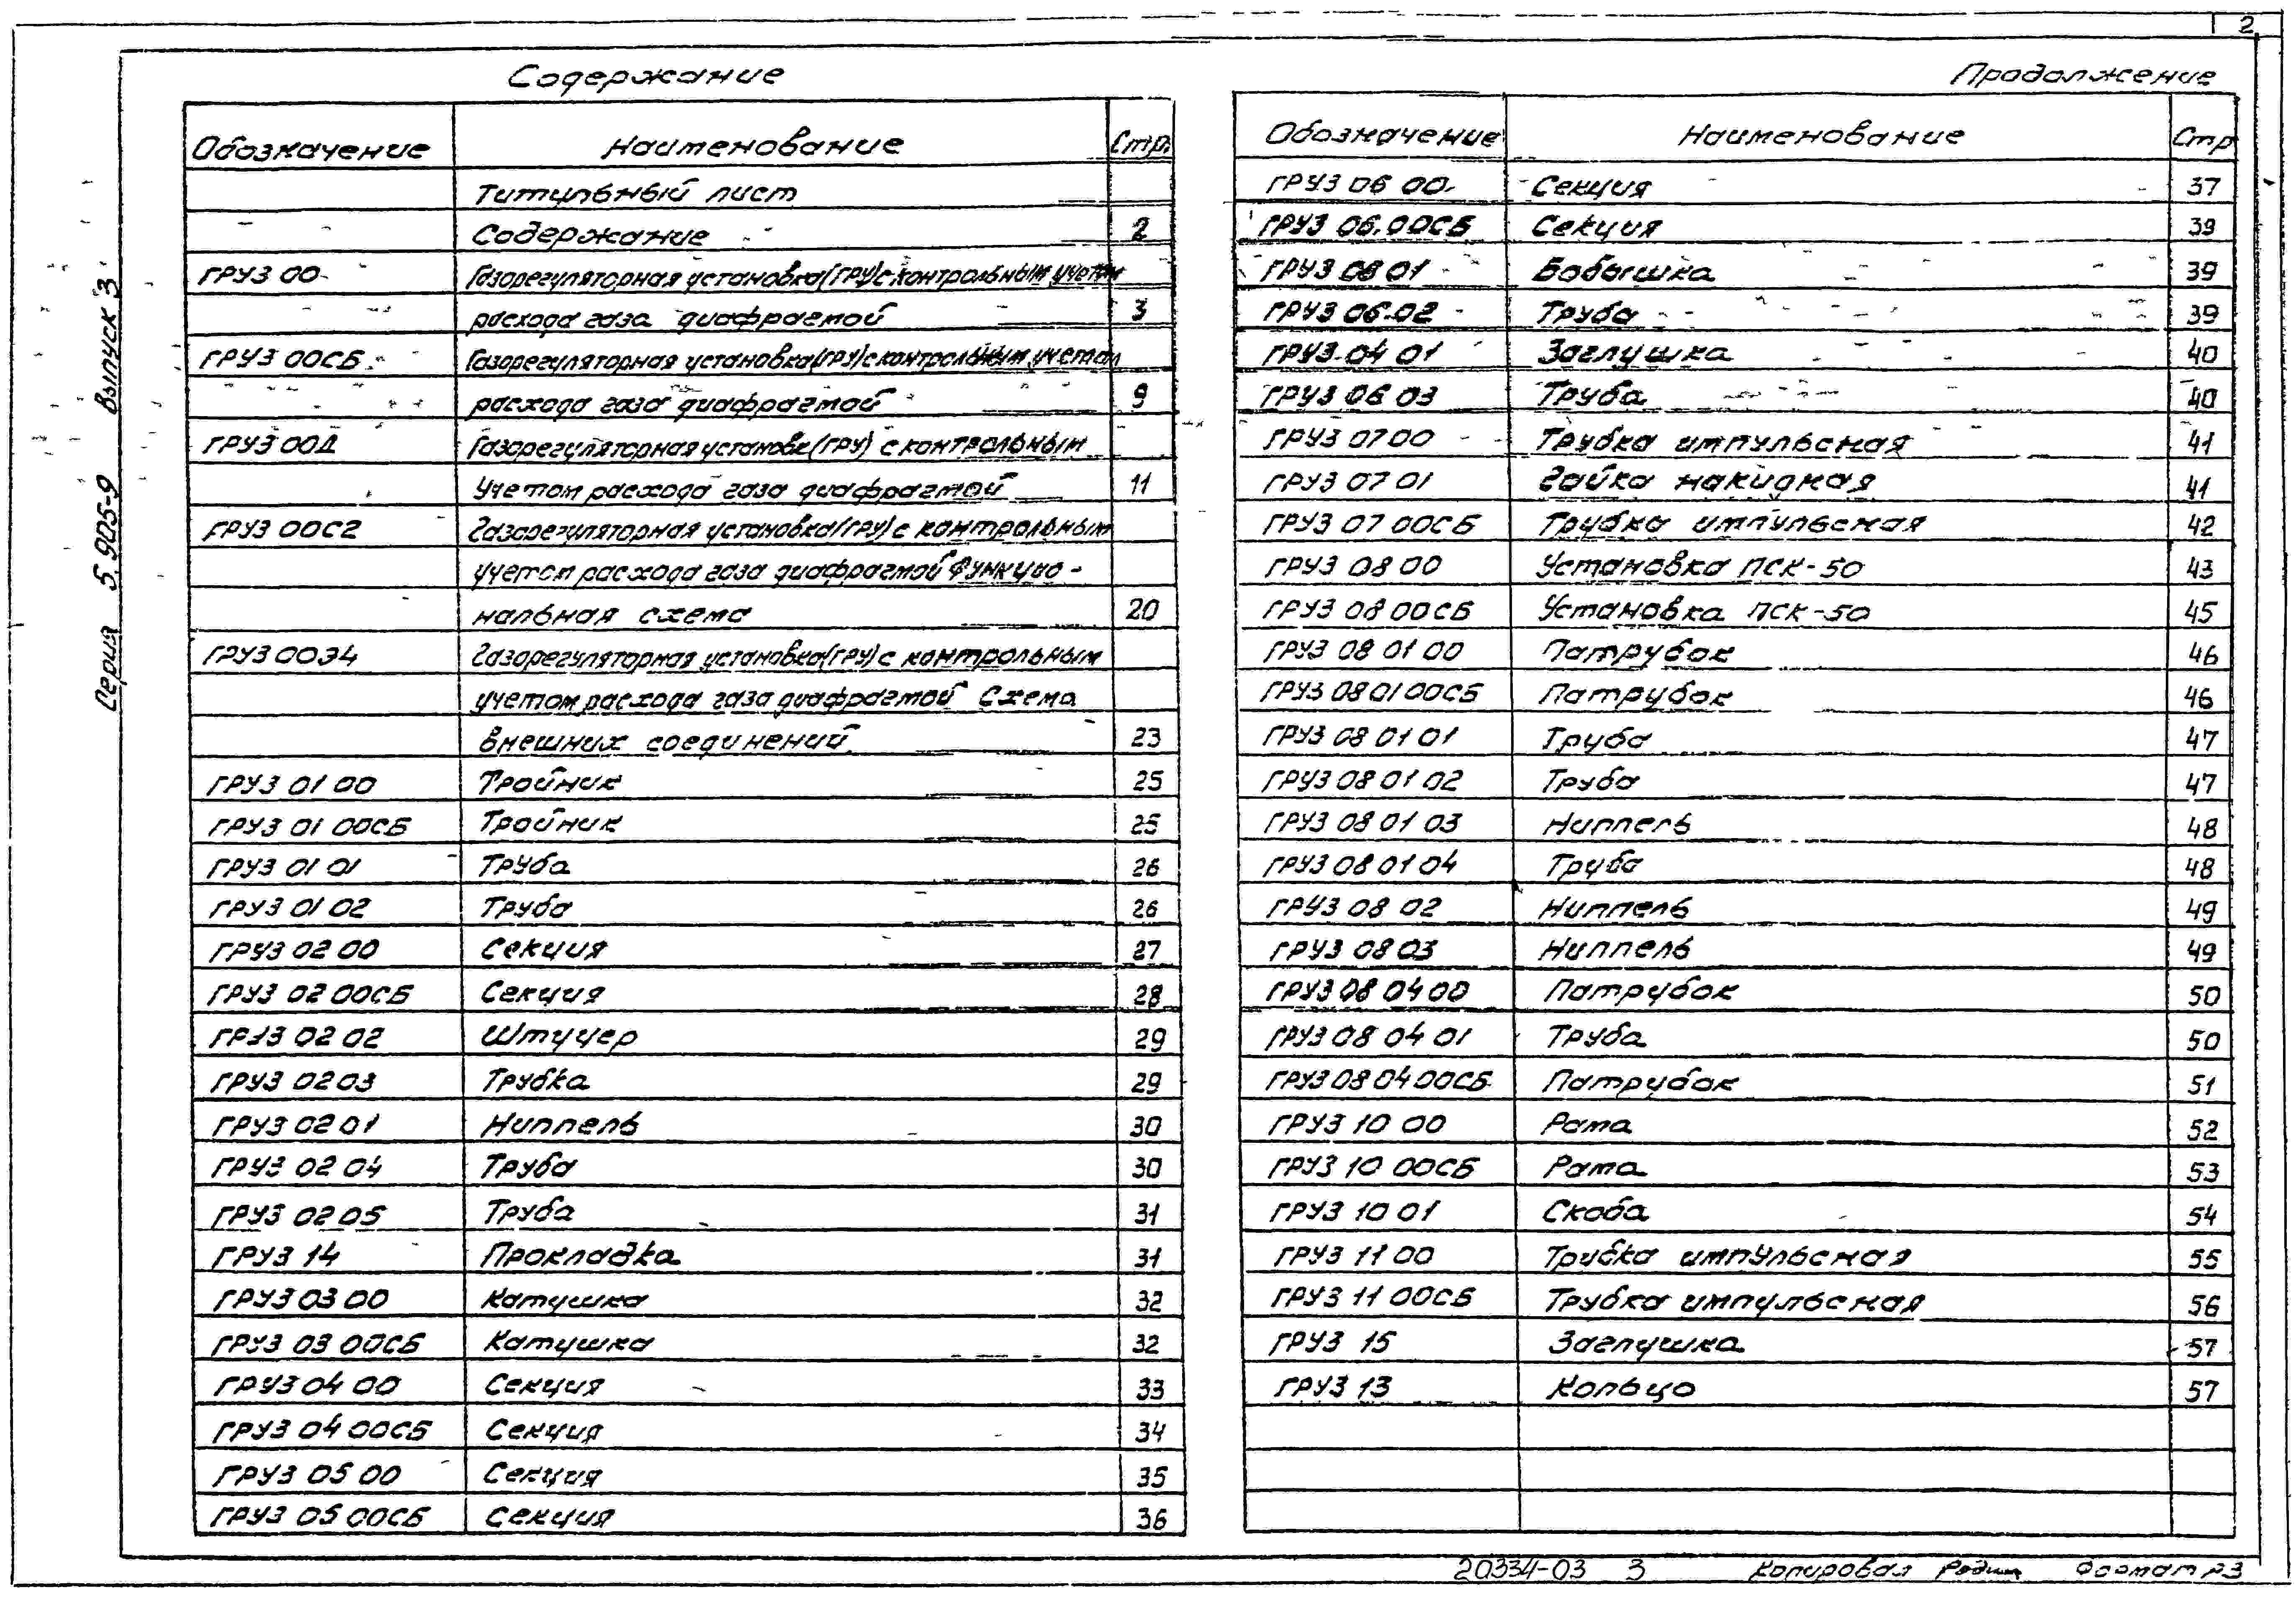 2
Содержание
Обозначение Наименование Стр.
Титульный лист
Содержание 2
ГРУ3 00 Газорегуляторная установка(ГРУ)с контрольным учетом
расхода газа диафрагмой 3
ГРУ3 00СБ Газорегуляторная установка(ГРУ)с контрольным учетом
расхода газа диафрагмой 9
ГРУ3 00Д Газорегуляторная установк(ГРУ) с контрольным
учетом расхода газа диафрагмой 11
ГРУ3 00С2 Газорегуляторная установка(ГРУ) с контрольным
учетом расхода газа диафрагмой Функцио-
нальная схема 20
ГРУ3 00Э4 Газорегуляторная установка(ГРУ) с контрольным
учетом расхода газа диафрагмой Схема
внешних соединений 23
ГРУ3 01 00 Тройник 25
ГРУ3 01 00СБ Тройник 25
ГРУ3 01 01 Труба 26
ГРУ3 01 02 Труба 26
ГРУ3 02 00 Секция 27
ГРУ3 02 00СБ Секция 28
ГРУ3 02 02 Штуцер 29
ГРУ3 02 03 Трубка 29
ГРУ3 02 01 Ниппель 30
ГРУ3 02 04 Труба 30
ГРУ3 02 05 Труба 31
ГРУ3 14 Прокладка 31
ГРУ3 03 00 Катушка 32
ГРУ3 03 00СБ Катушка 32
ГРУ3 04 00 Секция 33
ГРУ3 04 00СБ Секция 34
ГРУ3 05 00 Секция 35
ГРУ3 05 00СБ Секция 36
Продолжение
Обозначение Наименование Стр
ГРУ3 06 00 Секция 37
ГРУ3 06.00СБ Секция 39
ГРУ3 08 01 Бобышка 39
ГРУ3 06.02 Труба 39
ГРУ3 04 01 Заглушка 40
ГРУ3 06 03 Труба 40
ГРУ3 07 00 Трубка импульсная 41
ГРУ3 07 01 Гайка накидная 41
ГРУ3 07 00СБ Трубка импульсная 42
ГРУ3 08 00 Установка ПСК-50 43
ГРУ3 08 00СБ Установка ПСК-50 45
ГРУ3 08 01 00 Патрубок 46
ГРУ3 08 01 00СБ Патрубок 46
ГРУ3 08 01 01 Труба 47
ГРУ3 08 01 02 Труба 47
ГРУ3 08 01 03 Ниппель 48
ГРУ3 08 01 04 Труба 48
ГРУ3 08 02 Ниппель 49
ГРУ3 08 03 Ниппель 49
ГРУ3 08 04 00 Патрубок 50
ГРУ3 08 04 01 Труба 50
ГРУ3 08 04 00СБ Патрубок 51
ГРУ3 10 00 Рама 52
ГРУ3 10 00СБ Рама 53
ГРУ3 10 01 Скоба 54
ГРУ3 11 00 Трубка импульсная 55
ГРУ3 11 00СБ Трубка импульсная 56
ГРУ3 15 Заглушка 57
ГРУ3 13 Кольцо 57
Серия 5.905-9 Выпуск 3
20334-03 3 Копировал Формат А3